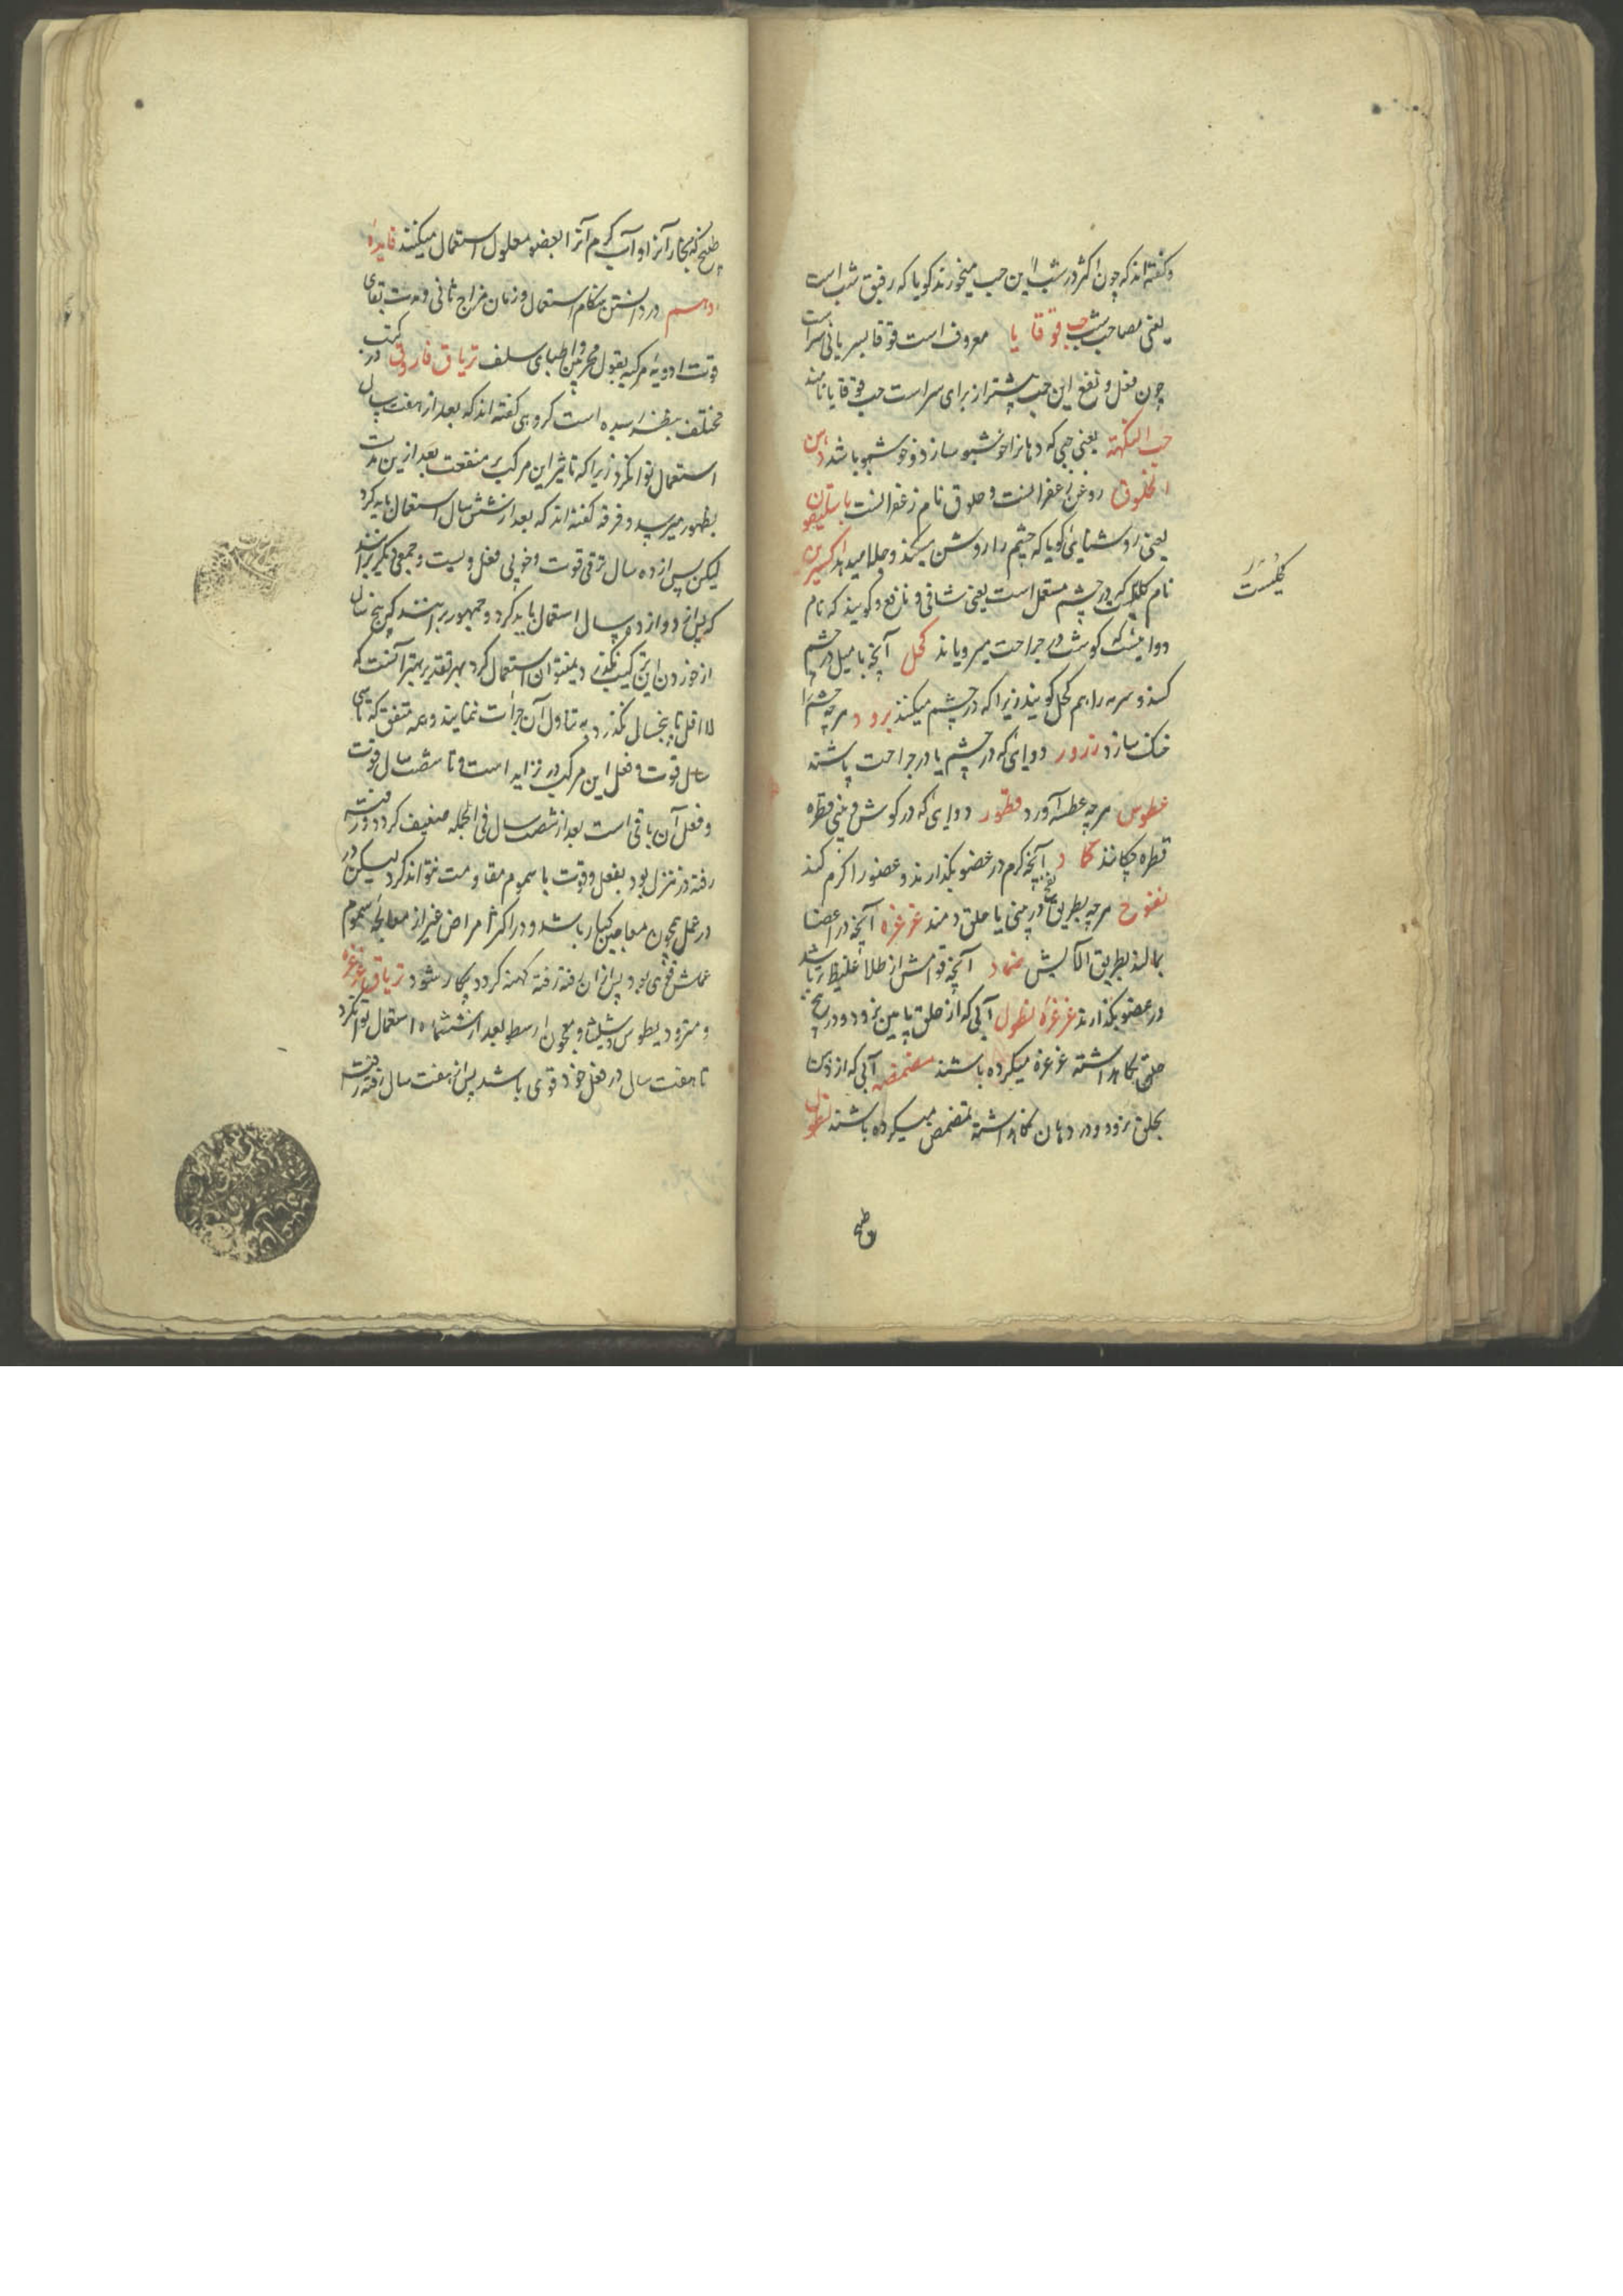 وکفته اند که چون اکثر در شب این حب میخورند کویا که رفیق شب است
یعنی مصاحب شب حب قوقایا معروف است قوقا بسریانی سر است
چون فعل و نفع این حب بیشتر از برای سر است حب قوقایا نامند
حب النکهة یعنی حبی که دهانرا خوشبو سازد و خوشبو باشد دهن
الخلوق روغن زعفرانست و خلوق نام زعفرانست باسلیقون
یعنی روشنایی کویا که چشم را روشن میکند و جلا میدهد اکسیرین
نام کحلیست که در چشم مستعمل است یعنی شافی و نافع و کویند که نام
دواییست که کوشت در جراحت میرویاند کحل آنچه با میل در چشم
کنند و سرمه را هم کحل کویند زیرا که در چشم میکنند برود هرچه چشم را
خنک سازد ذرور دوایی که در چشم یا در جراحت پاشند
عطوس هرچه عطسه آورد قطور دوایی که در کوش و بینی قطره
قطره چکانند کماد آنچه کرم در عضو بکذارند و عضو را کرم کند
نفوخ هرچه بطریق نفخ در بینی یا حلق دمند غرغره آنچه در اعضا
بمالند بطریق آلایش ضماد آنچه قوامش از طلا غلیظ تر باشد
در عضو بکذارند غرغره نطول آبی که از حلق پایین نرود و در بیخ
حلق نکاهداشته غرغره میکرده باشند مضمضه آبی که از دهن
بحلق نرود و در دهان نکاهداشته تمضمض میکرده باشند نطول
طبخ
کحلیست
طبیخ که بخار آنرا و آب کرم آنرا بعضو معلول استعمال میکنند فایدهٔ
دهم در دانستن هنکام استعمال و زمان مزاج ثانی و مدت بقای
قوت ادویهٔ مرکبه بقول مجربین و اطبای سلف تریاق فاروق در کتب
مختلف بنظر رسیده است کروهی کفته اند که بعد از هفت سال
استعمال توان کرد زیرا که تاثیر این مرکب پر منفعت بعد از این مدت
بظهور میرسد و فرقه کفته اند که بعد از شش سال استعمال باید کرد
لیکن پس از ده سال ترقی قوت و خوبی فعل ویست و جمعی دیکر برانند
که پس از دوازده سال استعمال باید کرد و جمهور برانند که پنج سال
از خوردن این ترکیب نکذرد نمیتوان استعمال کرد بهر تقدیر بهتر آنست که
لا اقل تا پنجسال نکذرد به تناول آن جرات ننمایند و همه متفق که تا سی
سال قوت و فعل این مرکب در تزاید است و تا شصت سال قوت
و فعل آن باقی است بعد از شصت سال فی الجمله ضعیف کردد و رفته
رفته در تنزل بود بفعل و قوت با سموم مقاومت نتواند کرد لیکن در
در عمل همچون معاجین کبار باشد و در اکثر امراض غیر از معالجهٔ سموم
عملش قوی بود پس از آن رفته رفته کهنه کردد بیکار شود تریاق عزره
و مثرودیطوس و شلیثا و معجون ارسطو بعد از ششماه استعمال توان کرد
تا هفت سال در فعل خود قوی باشد پس از هفت سال رفته رفته